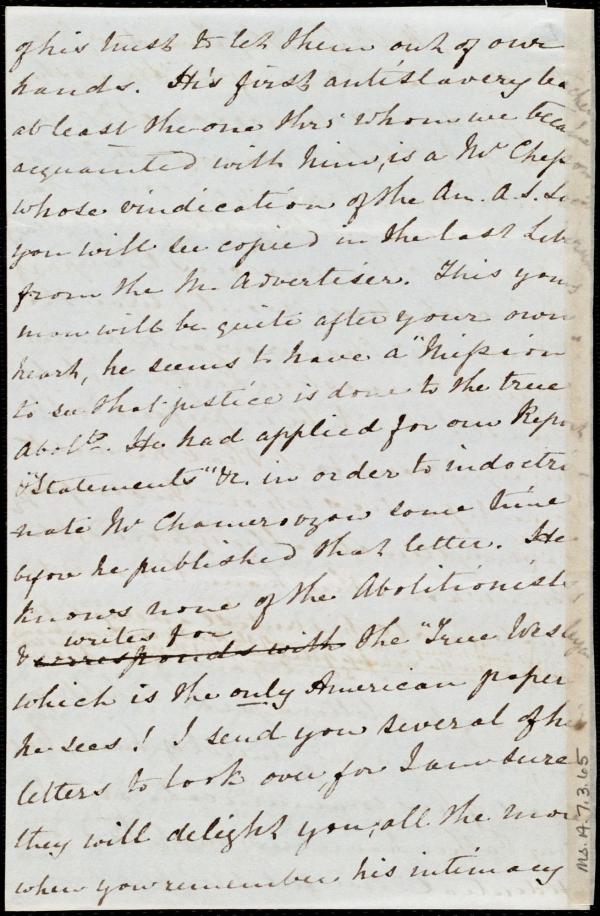 of his trust to let them out of our
hands. His first antislavery
at least the one thro' whom we beca
acquainted with him, is a Mr Chesson
whose vindication of the Am. A. S. So
you will see copied in the last Liber
from the M. Advertiser. This young
man will be quite after your own
heart, he seems to have a "Mission
to see that justice is done to the true
Abolts. He had applied for our Report,
"Statements" &c. in order to indoctri
nate Mr Chamerovzow some time
before he published that letter. He
knows none of the Abolitionists,
writes for
& corresponds with the "True Wesleyan
which is the only American paper
he sees! I send you several of his
letters to look over, for I am sure
they will delight you, all the more
when you remember his intimacy
Ms. A. 7. 3. 65